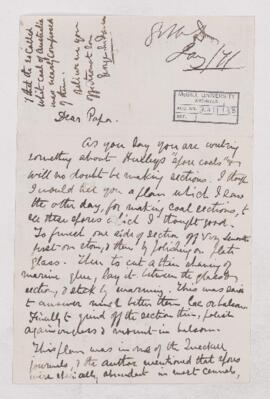 that the so Called
white coal of Australia
was nearly composed
of them.
Believe me your
affectionate Son
George
Jan 7/71
McGILL UNIVERSITY
ARCHIVES
ACC. NO.
REF.
Dear Papa.
As you say you are writing
something about Huxley's "spore coals" &
will no doubt be making sections, I thought
I would tell you a plan which I saw
the other day, for making coal sections, to
see these spores which I thought good.
To grind one side of section off very smooth
first on stone, & then by polishing on plate
glass. Then to cut a thin shaving of
marine glue, lay it between the glass &
section, & stick by warming. This was said
to answer much better than lac or balsam.
Finally to grind off the section thin, polish
again on glass & mount in balsam.
This plan was in one of the
journals, & the author mentioned that spores
were specially abundant in most cannels,